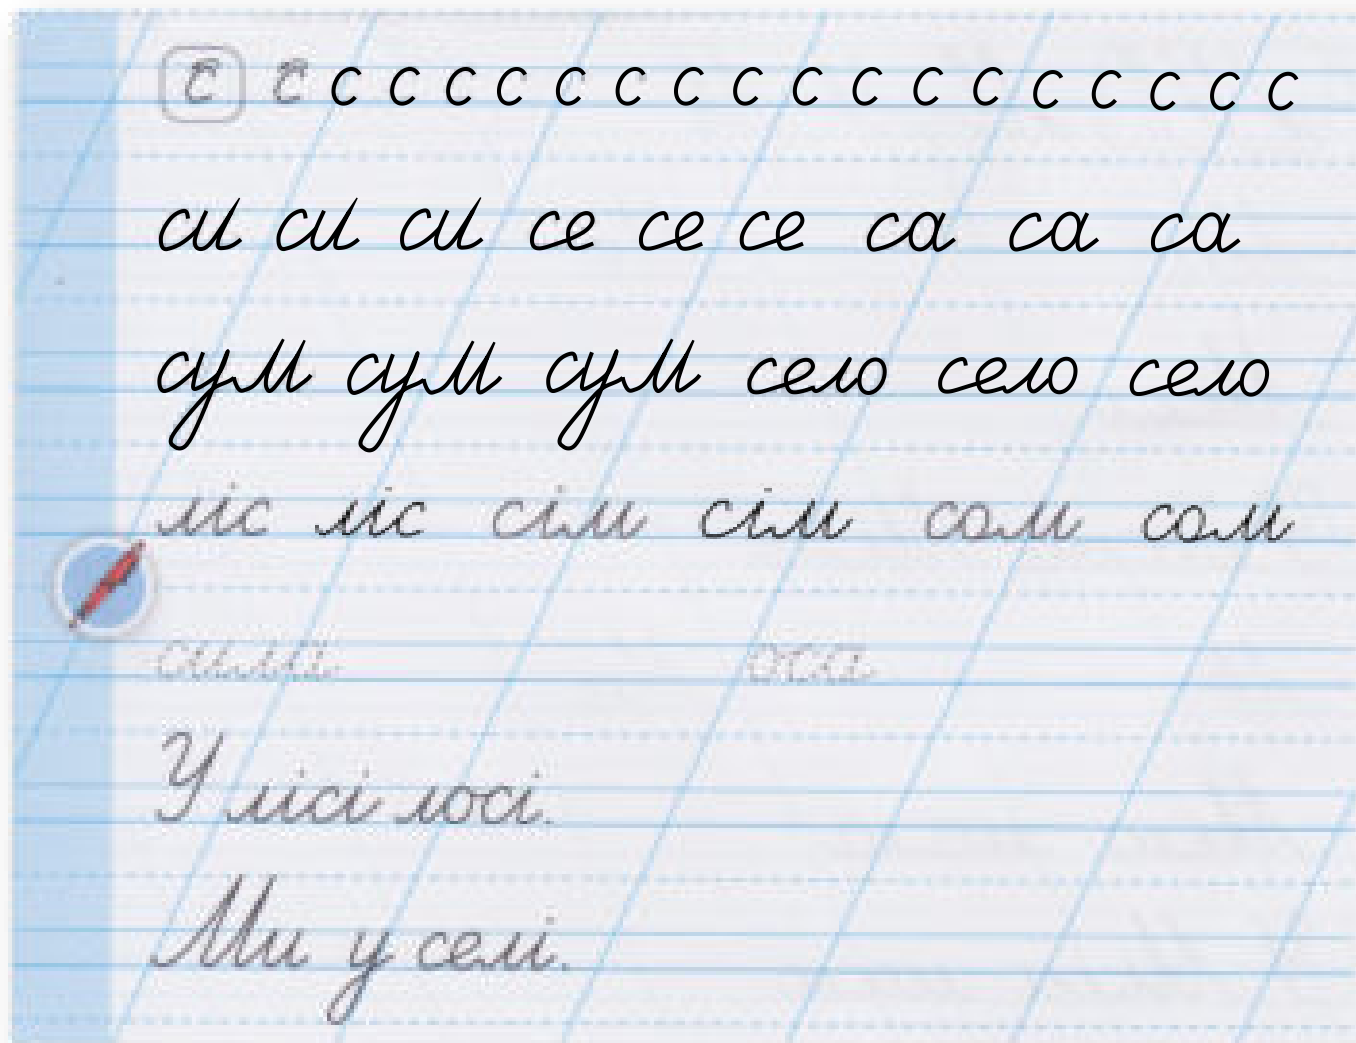 с с с с с с с с с с с с с с с с с с с
си си си се се се са са са
сум сум сум село село село
ліс ліс сім сім сом сом
оса
У лісі лосі.
Ми у селі.